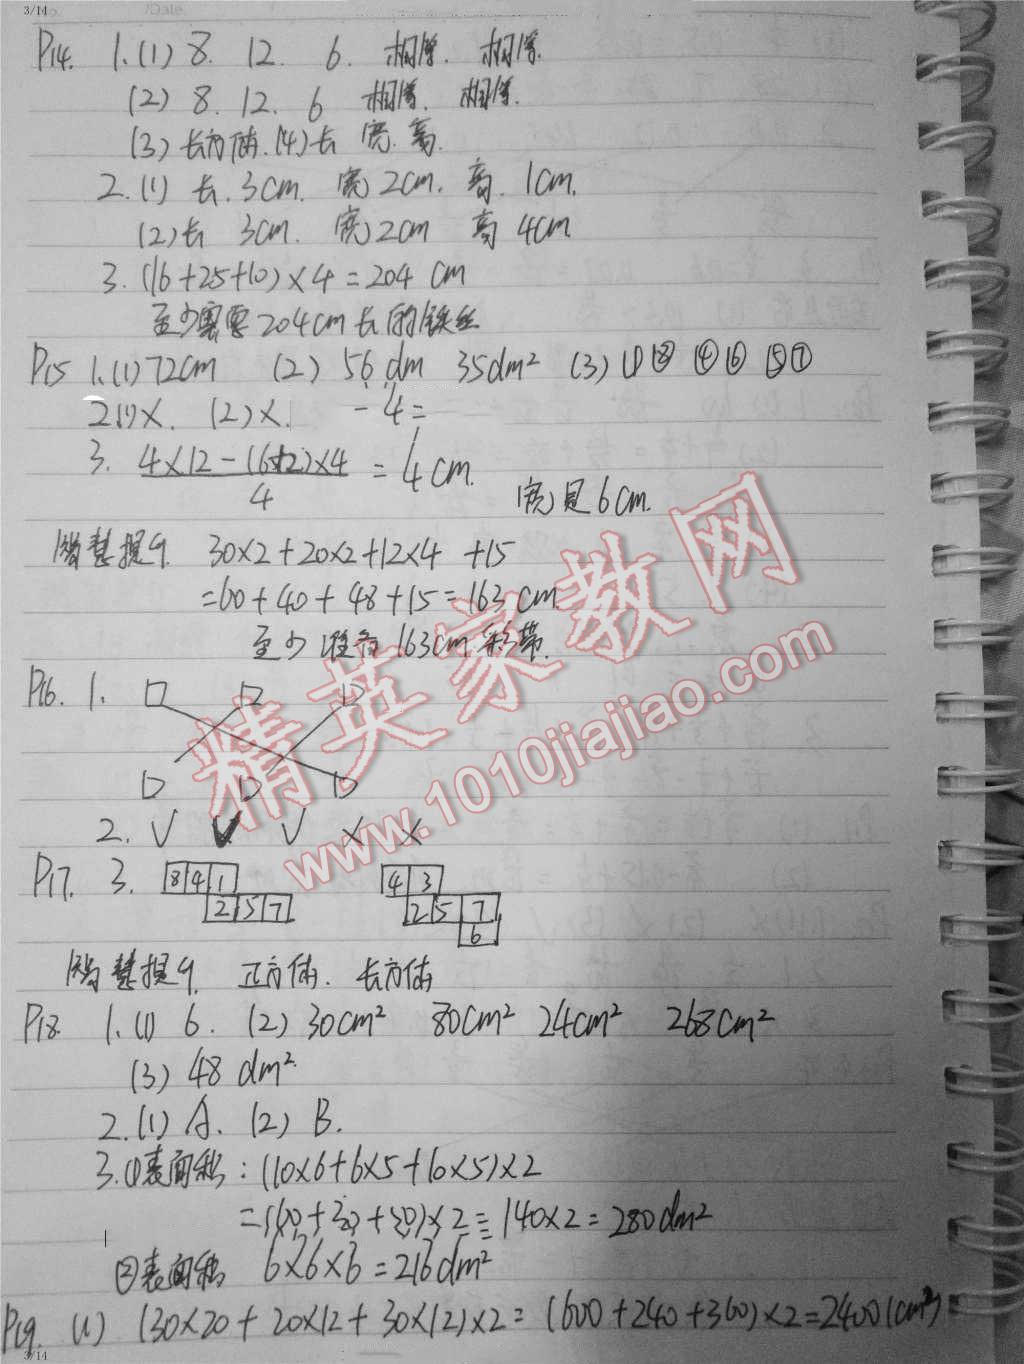 3/14
P14. 1.(1) 8. 12. 6. 相等. 相等.
(2) 8. 12. 6 相等. 相等.
(3) 长方体. (4) 长 宽. 高.
2.(1) 长. 3cm. 宽 2cm. 高. 1cm.
(2) 长 3cm. 宽 2cm 高 4cm
3. (16+25+10)×4=204 cm
至少需要 204cm 长的铁丝
P15 1.(1) 72cm (2) 56 dm 35dm² (3) ①③ ④⑥ ⑤⑦
2(1)×. (2)×. -4=
3. 4×12-(6+2)×4 = 4cm.
4
宽是6cm.
智慧提升. 30×2+20×2+12×4 +15
=60+40+48+15=163cm
至少准备163cm彩带.
P16. 1.
2. √ √ √ × ×
P17. 3. 8 4 1 4 3
2 5 7 2 5 7
6
智慧提升. 正方体. 长方体
P18. 1.(1) 6. (2) 30cm² 80cm² 24cm² 268cm²
(3) 48 dm².
2.(1) A. (2) B.
3.①表面积: (10×6+6×5+10×5)×2
=(60+30+50)×2=140×2=280dm²
②表面积 6×6×6=216dm²
P19. (1) (30×20+20×12+30×12)×2=(600+240+360)×2=2400(cm²)
3/14
精英家教网
www.1010jiajiao.com